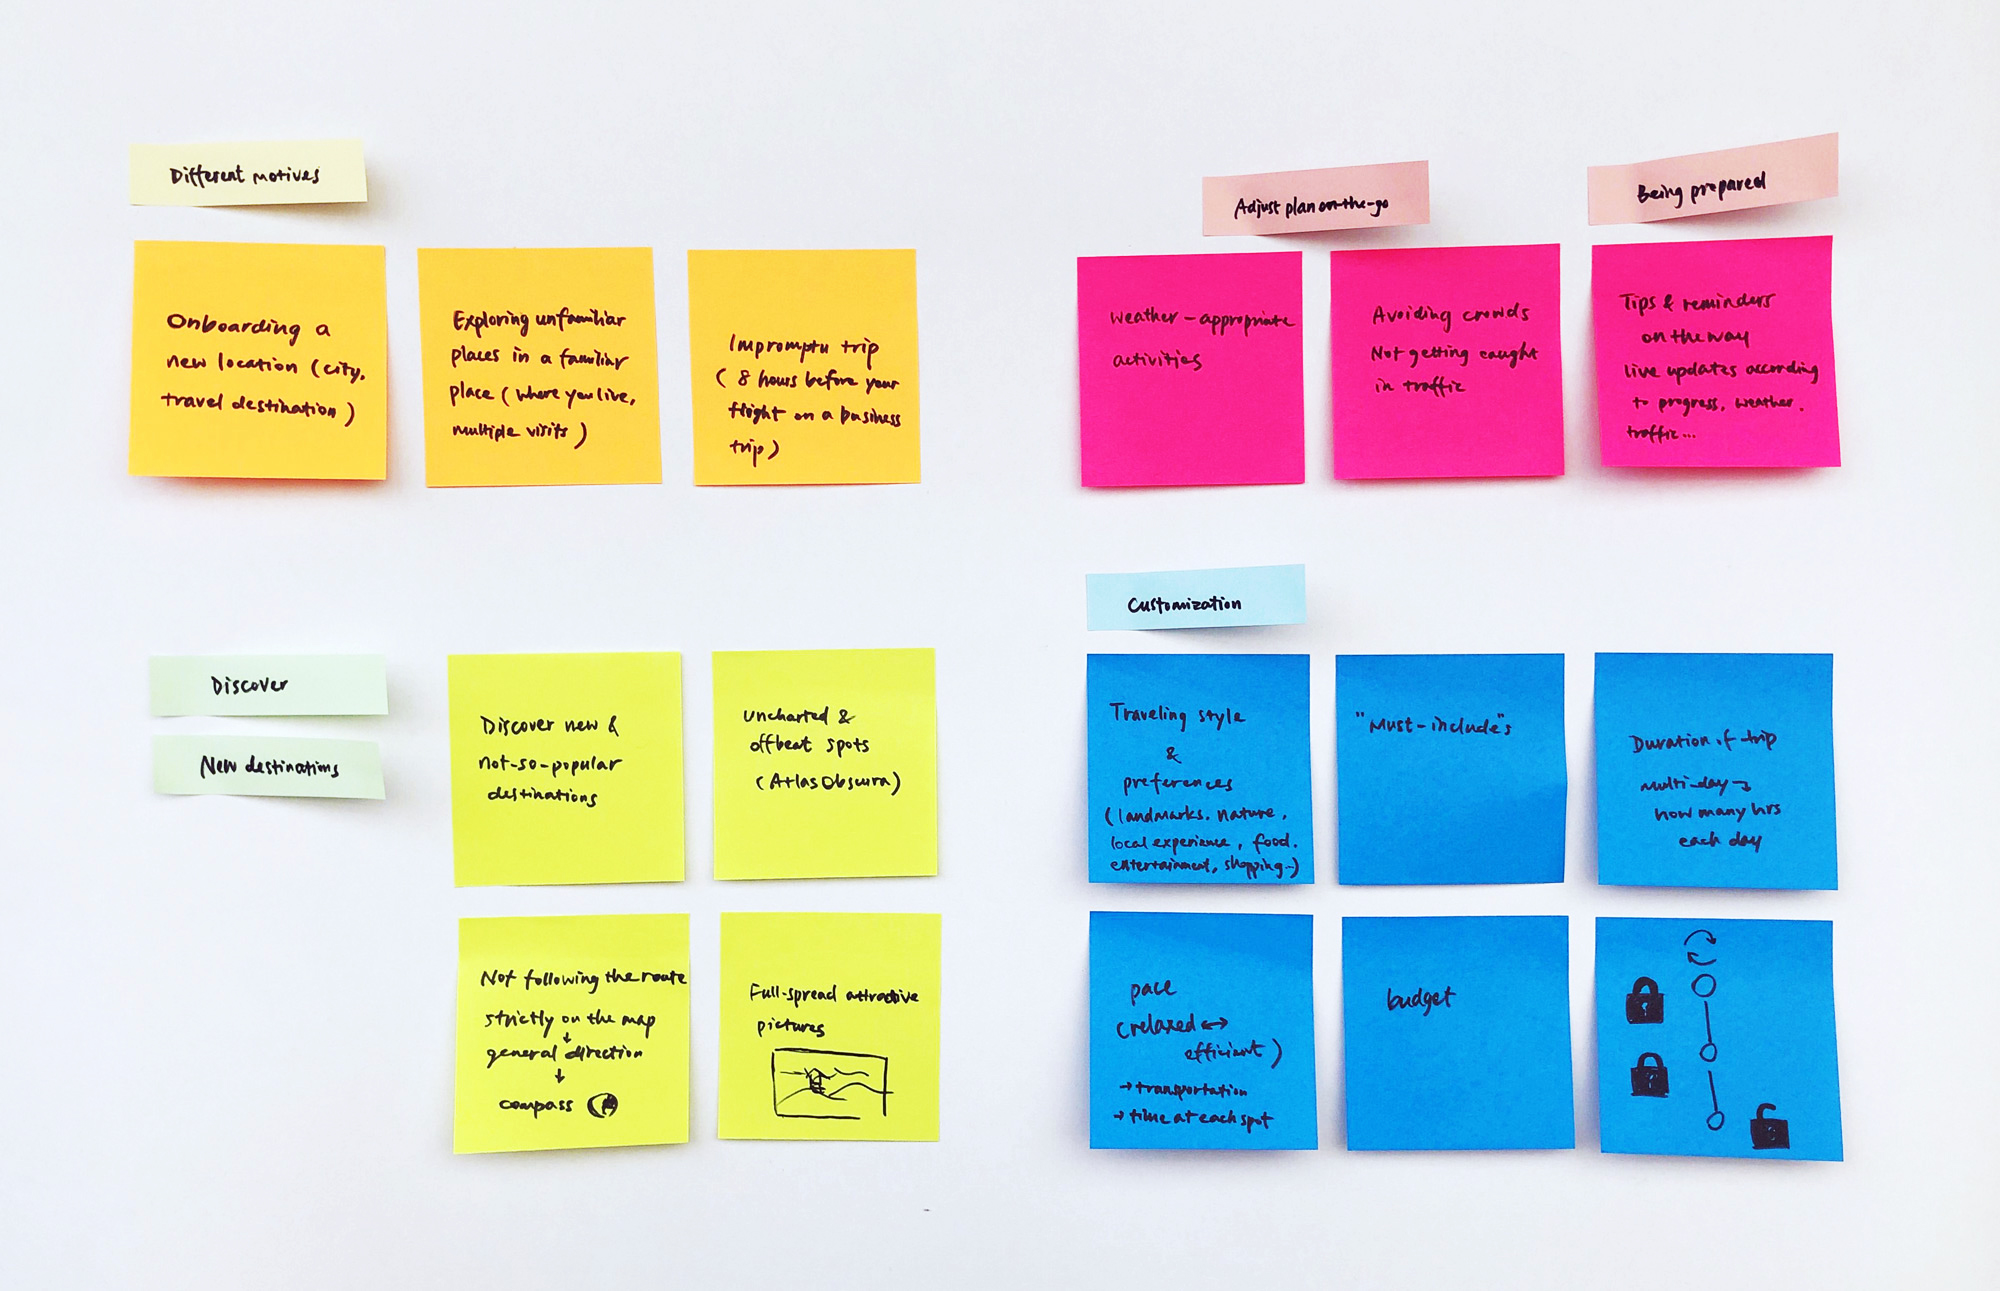 Different motives
Onboarding a
new location (city,
travel destination)
Exploring unfamiliar
places in a familiar
place (where you live,
multiple visits)
Impromptu trip
(8 hours before your
flight on a business
trip)
Adjust plan on-the-go
Being prepared
weather-appropriate
activities
Avoiding crowds
Not getting caught
in traffic
Tips & reminders
on the way
live updates according
to progress, weather,
traffic...
Discover
New destinations
Discover new &
not-so-popular
destinations
uncharted &
offbeat spots
(Atlas Obscura)
Not following the route
strictly on the map
↓
general direction
↓
compass
Full-spread attractive
pictures
Customization
Traveling style
&
preferences
(landmarks, nature,
local experience, food,
entertainment, shopping~)
"Must-include"s
Duration of trip
multi-day →
how many hrs
each day
pace
(relaxed ↔
efficient)
→ transportation
→ time at each spot
budget